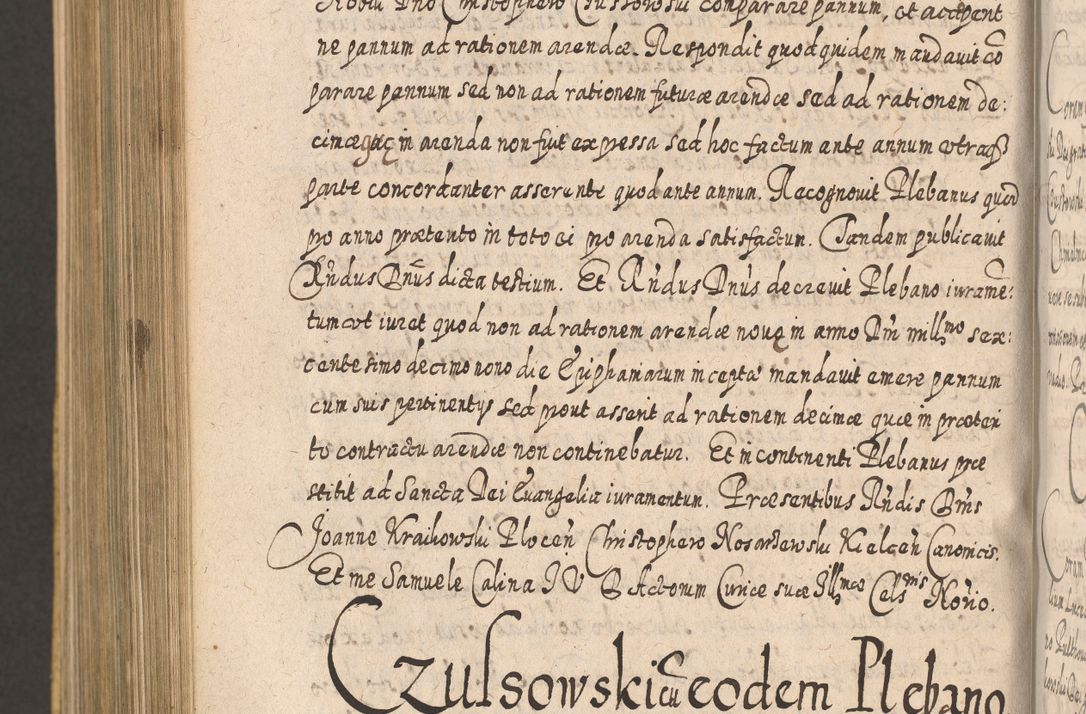 Nobili Dno Christophero Czulsowski comparare pannum, et accipent
ne pannum ad rationem arendæ. Respondit quod quidem mandavit cō
parare pannum sed non ad rationem futuræ arendæ sed ad rationem de:
cimæ quæ in arenda non fuit expressa sed hoc factum ante annum utraq
parte concordanter asserunte quod ante annum. Recognovit Plebanus quod
pro anno prætento in toto ei pro arenda satisfactum. Tandem publicavit
Rndus Dnus dicta testium. Et Rndus Dnus decrevit Plebano iurame:
tum ut iuret quod non ad rationem arendæ novæ in anno Dni millmo sex:
centesimo decimo nono die Epiphaniarum incepta mandavit emere pannum
cum suis pertinentys sed prout asserit ad rationem decimæ quæ in præteri
to contractu arendæ non continebatur. Et in continenti Plebanus præ
stitit ad Sancta Dei Evangelia iuramentum. Præsentibus Rndis Dnis
Joanne Kraikowski Plocen Christophero Nosarzewski Kielcen Canonicis.
Et me Samuele Calina I V D Actorum Curiæ suæ Illmæ Celsnis Norio.
Czulsowski cū eodem Plebano